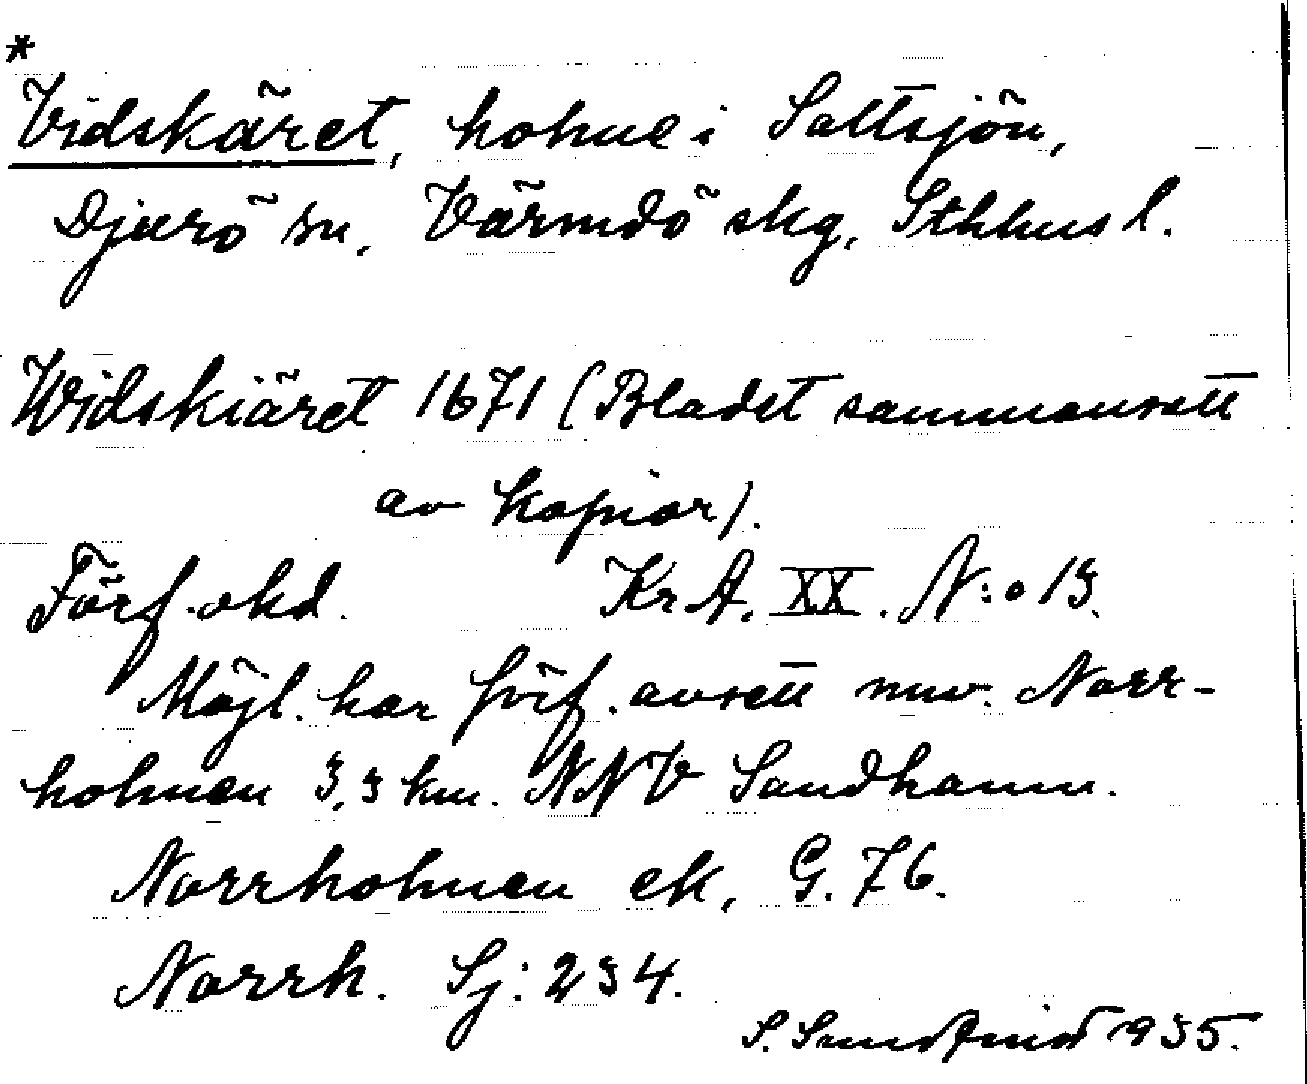 *
Vidskäret, holme i Saltsjön,
Djurö sn, Värmdö skg, Sthlms l.
Widskiäret 1671 (Bladet sammansatt
av kopior).
Förf. okd. Kr A. XX. N:o 13.
Möjl. har förf. avsett nuv. Norr-
holmen 3,3 km. NNV Sandhamn.
Norrholmen ek, G. 76.
Norrh. Sj: 234.
S. 1935.